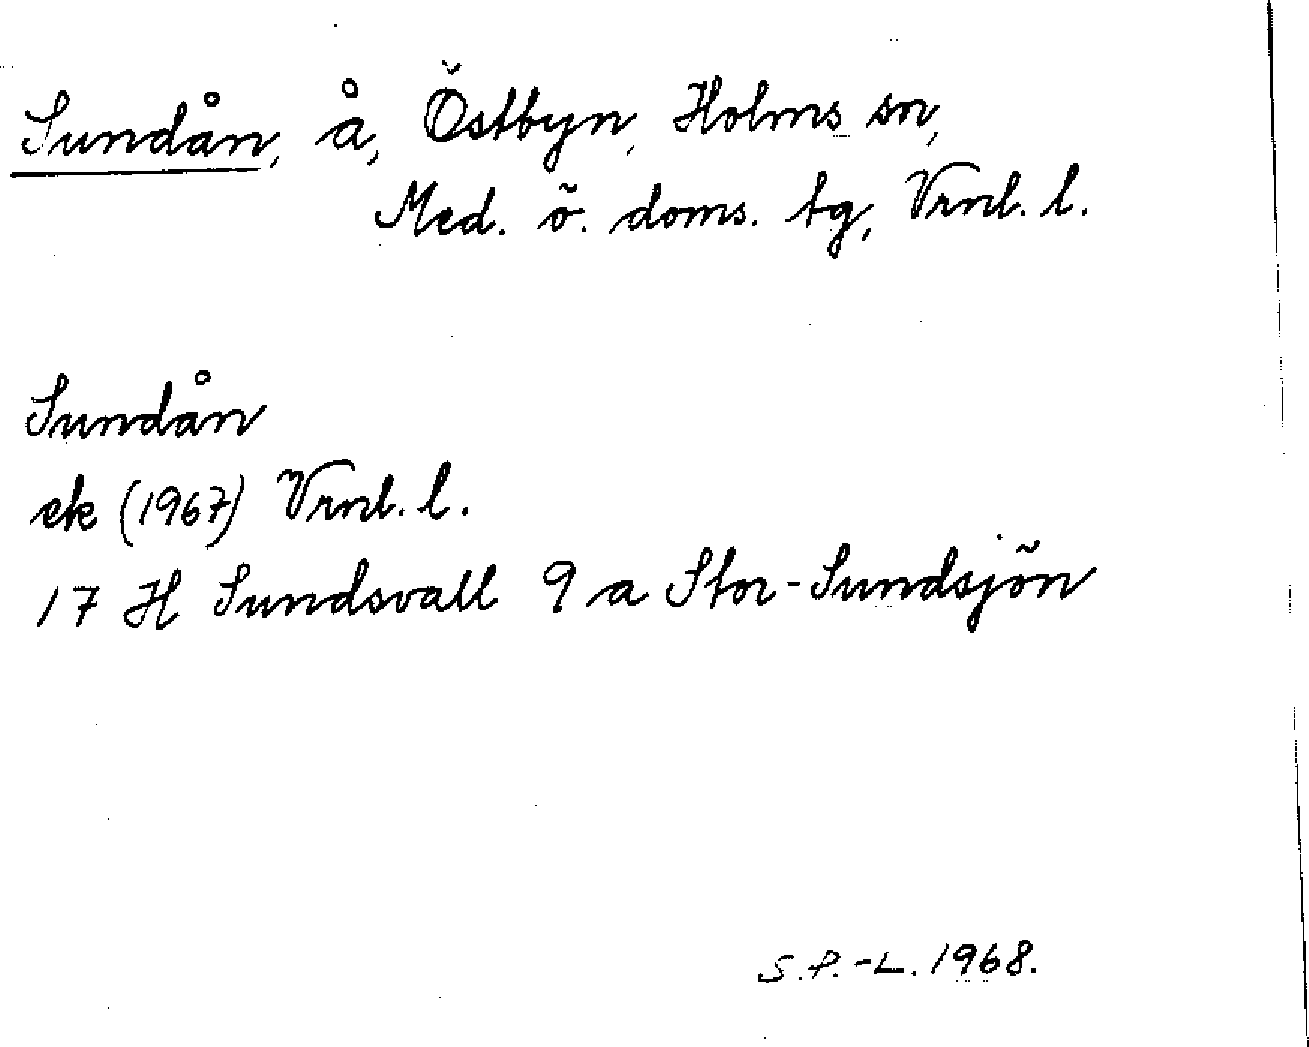 Sundån, å, Östbyn, Holms sn,
Med. ö. doms. tg, Vrnl. l.
Sundån
ek (1967) Vrnl. l.
17 H Sundsvall 9 a Stor-Sundsjön
S.P.-L. 1968.